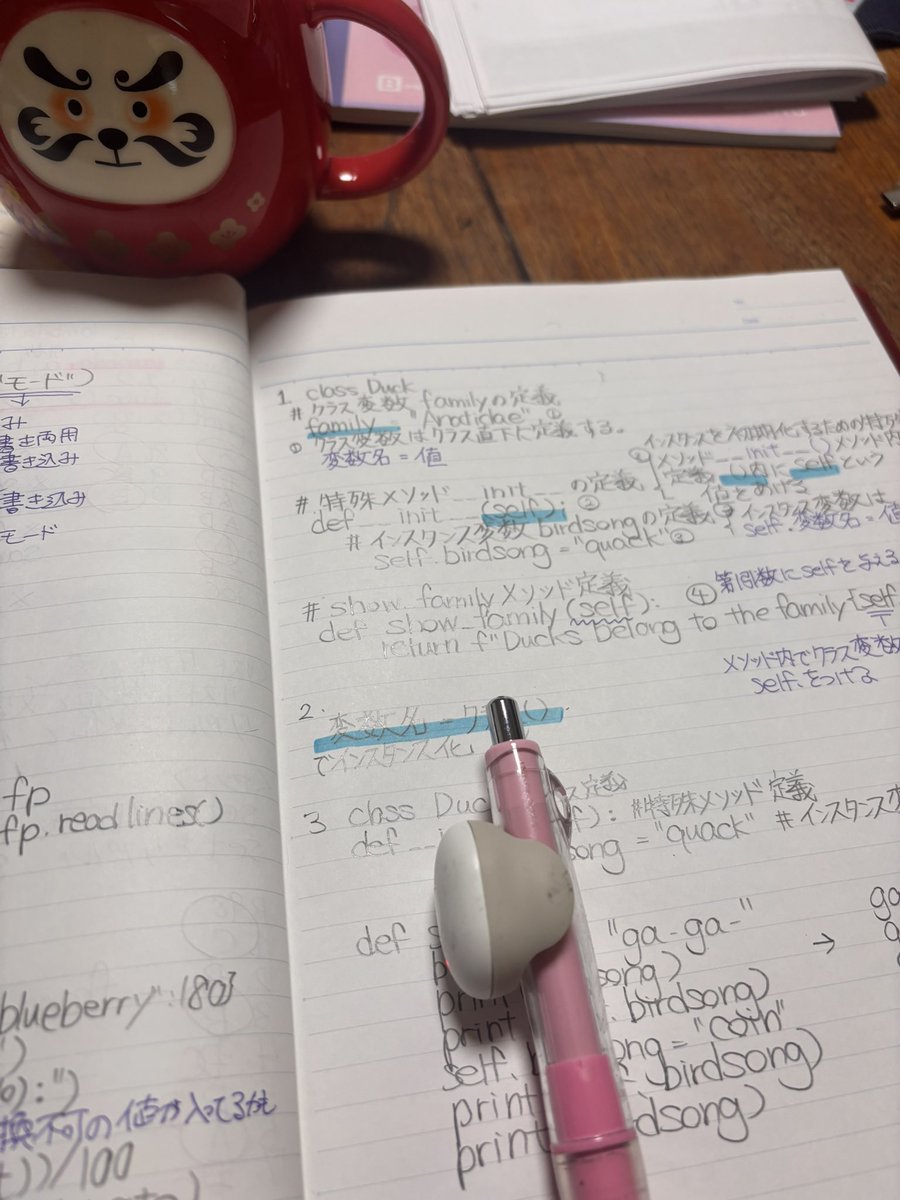 モード")
み
書き両用
書き込み
書き込み
モード
fp
fp.readlines()
blueberry":180}
")
換不可の値が入ってるかも
))/100
1. class Duck
# クラス変数 familyの定義
family "Anatidae" ①
① クラス変数はクラス直下に定義する。
変数名 = 値
# 特殊メソッド __init__ の定義
def __init__(self): ②
# インスタンス変数 birdsongの定義
self.birdsong = "quack" ③
② インスタンスを初期化するための特殊
メソッド __init__() メソッド内
定義 ()内に self という
値をあげる
③ インスタンス変数は
self.変数名 = 値
# show_familyメソッド定義
def show_family(self):
return f"Ducks belong to the family{self
④ 第1引数にselfを与える
メソッド内でクラス変数
self.をつける
2.
変数名 = クラ ()
でインスタンス化
3 class Duc ス定義
def __i f): #特殊メソッド定義
song = "quack" #インスタンス変
def s "ga-ga-"
song)
print .birdsong)
print ng = "coin"
self.b .birdsong)
print rdsong)
print
→
ga